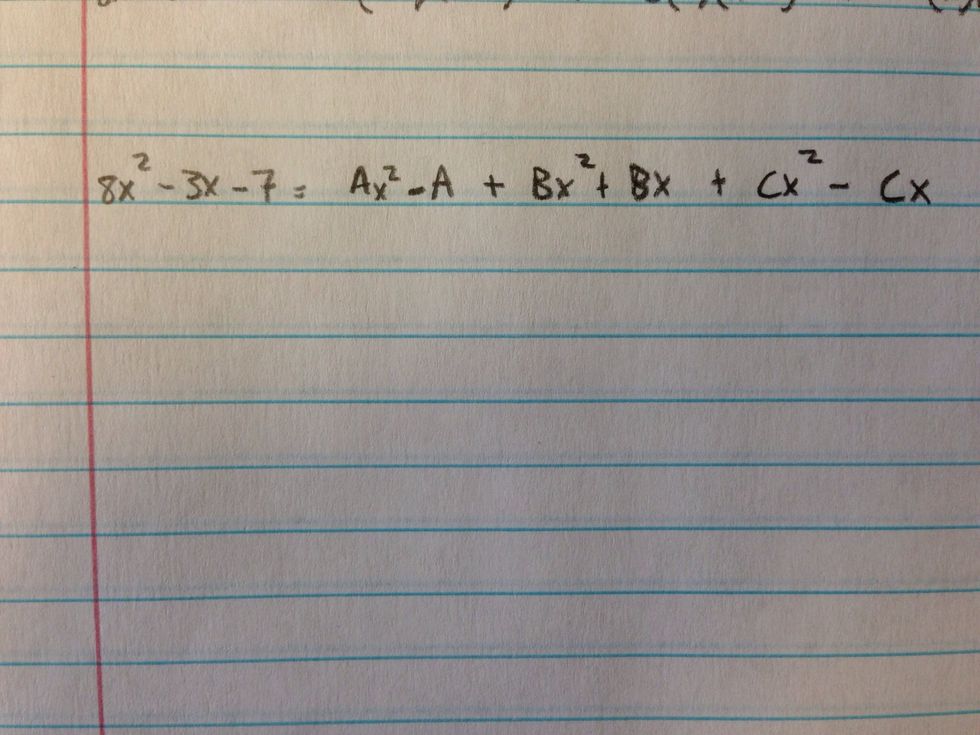 8x² - 3x - 7 = Ax² - A + Bx² + Bx + Cx² - Cx